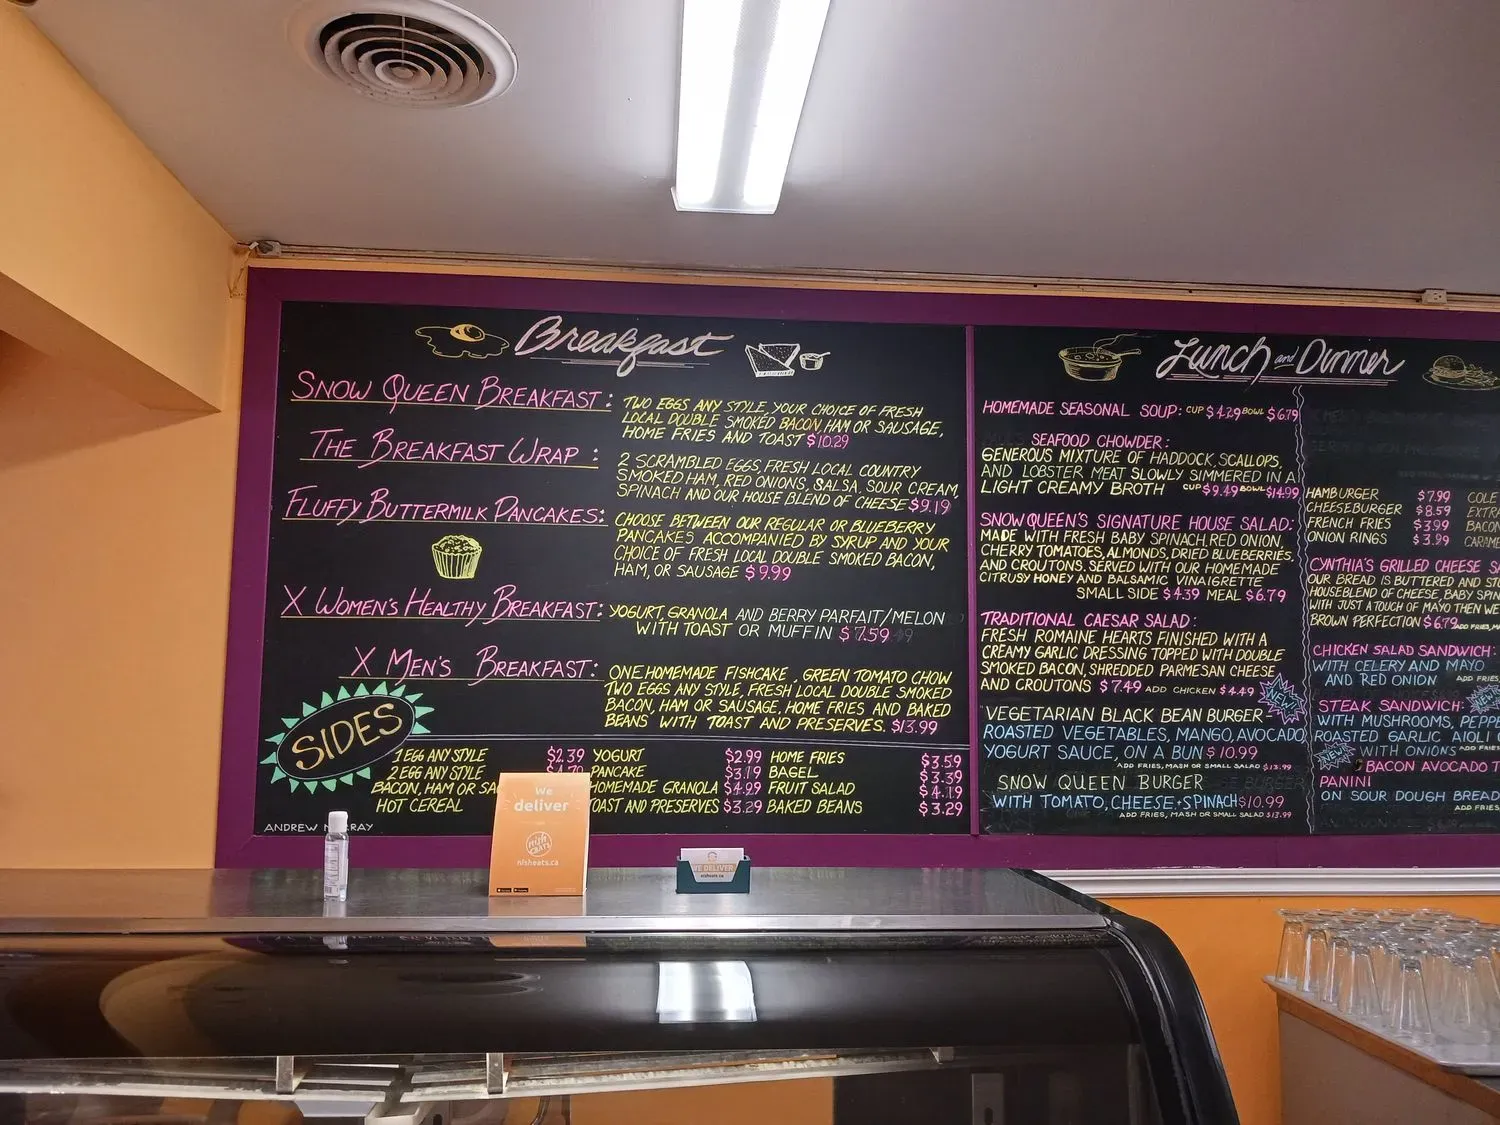 Breakfast
SNOW QUEEN BREAKFAST:
TWO EGGS ANY STYLE, YOUR CHOICE OF FRESH
LOCAL DOUBLE SMOKED BACON, HAM OR SAUSAGE,
HOME FRIES AND TOAST $10.29
THE BREAKFAST WRAP :
2 SCRAMBLED EGGS, FRESH LOCAL COUNTRY
SMOKED HAM, RED ONIONS, SALSA, SOUR CREAM,
SPINACH AND OUR HOUSE BLEND OF CHEESE $9.19
FLUFFY BUTTERMILK PANCAKES:
CHOOSE BETWEEN OUR REGULAR OR BLUEBERRY
PANCAKES ACCOMPANIED BY SYRUP AND YOUR
CHOICE OF FRESH LOCAL DOUBLE SMOKED BACON,
HAM, OR SAUSAGE $9.99
X WOMEN'S HEALTHY BREAKFAST:
YOGURT, GRANOLA AND BERRY PARFAIT/MELON
WITH TOAST OR MUFFIN $7.59
X MEN'S BREAKFAST:
ONE HOMEMADE FISHCAKE, GREEN TOMATO CHOW
TWO EGGS ANY STYLE, FRESH LOCAL DOUBLE SMOKED
BACON, HAM OR SAUSAGE, HOME FRIES AND BAKED
BEANS WITH TOAST AND PRESERVES. $13.99
SIDES
1 EGG ANY STYLE $2.39
2 EGG ANY STYLE
BACON, HAM OR SA
HOT CEREAL
YOGURT $2.99
PANCAKE $3.19
HOMEMADE GRANOLA $4.99
TOAST AND PRESERVES $3.29
HOME FRIES $3.59
BAGEL $3.39
FRUIT SALAD $4.19
BAKED BEANS $3.29
ANDREW MURRAY
Lunch and Dinner
HOMEMADE SEASONAL SOUP: CUP $4.29 BOWL $6.79
SEAFOOD CHOWDER:
GENEROUS MIXTURE OF HADDOCK, SCALLOPS,
AND LOBSTER MEAT SLOWLY SIMMERED IN A
LIGHT CREAMY BROTH CUP $9.49 BOWL $14.99
SNOW QUEEN'S SIGNATURE HOUSE SALAD:
MADE WITH FRESH BABY SPINACH, RED ONION,
CHERRY TOMATOES, ALMONDS, DRIED BLUEBERRIES,
AND CROUTONS. SERVED WITH OUR HOMEMADE
CITRUSY HONEY AND BALSAMIC VINAIGRETTE
SMALL SIDE $4.39 MEAL $6.79
TRADITIONAL CAESAR SALAD:
FRESH ROMAINE HEARTS FINISHED WITH A
CREAMY GARLIC DRESSING TOPPED WITH DOUBLE
SMOKED BACON, SHREDDED PARMESAN CHEESE
AND CROUTONS $7.49 ADD CHICKEN $4.49
NEW!
VEGETARIAN BLACK BEAN BURGER-
ROASTED VEGETABLES, MANGO, AVOCADO
YOGURT SAUCE, ON A BUN $10.99
ADD FRIES, MASH OR SMALL SALAD $13.99
SNOW QUEEN BURGER
WITH TOMATO, CHEESE,+SPINACH $10.99
ADD FRIES, MASH OR SMALL SALAD $13.99
HAMBURGER $7.99
CHEESEBURGER $8.59
FRENCH FRIES $3.99
ONION RINGS $3.99
COLE
EXTRA
BACON
CARAME
CYNTHIA'S GRILLED CHEESE SA
OUR BREAD IS BUTTERED AND ST
HOUSEBLEND OF CHEESE, BABY SPIN
WITH JUST A TOUCH OF MAYO THEN WE
BROWN PERFECTION $6.79 ADD FRIES, M
CHICKEN SALAD SANDWICH:
WITH CELERY AND MAYO
AND RED ONION ADD FRIES,
STEAK SANDWICH: NEW!
WITH MUSHROOMS, PEPPE
ROASTED GARLIC AIOLI
NEW WITH ONIONS ADD FRIES
BACON AVOCADO T
PANINI
ON SOUR DOUGH BREAD
ADD FRIES
We
deliver
nish
EATS
nisheats.ca
WE DELIVER
nisheats.ca